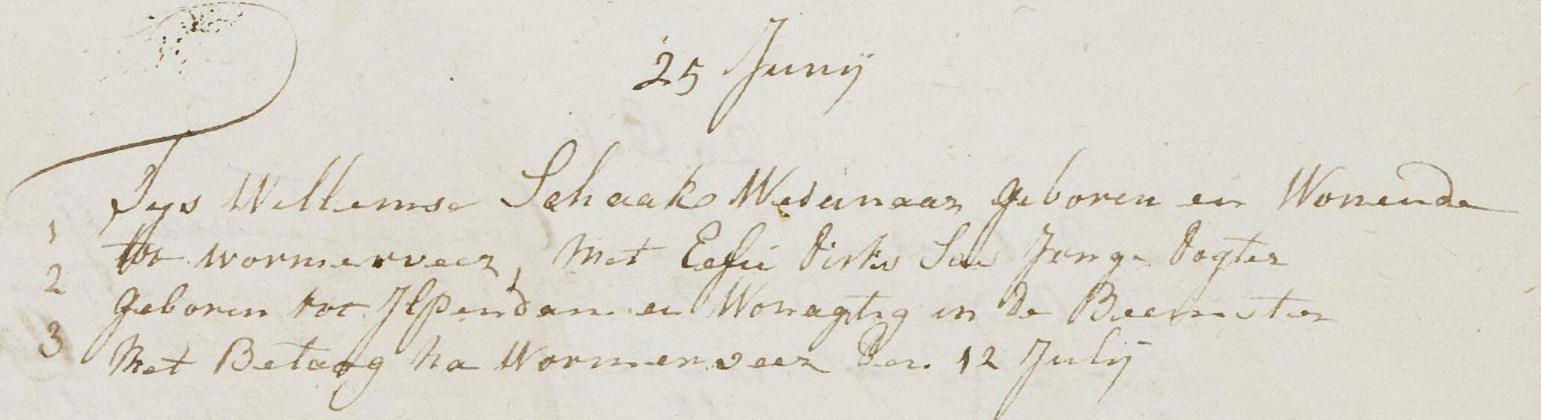 25 Junij
Tys Willemse Schaak Wedunaar geboren en Wonende
1 tot wormerveer, Met Eefie Dirks Sae Jonge Dogter
2 geboren tot Jlpendam en Wonagtig in de Beemster
3 Met Betoog na Wormerveer den 12 Julij